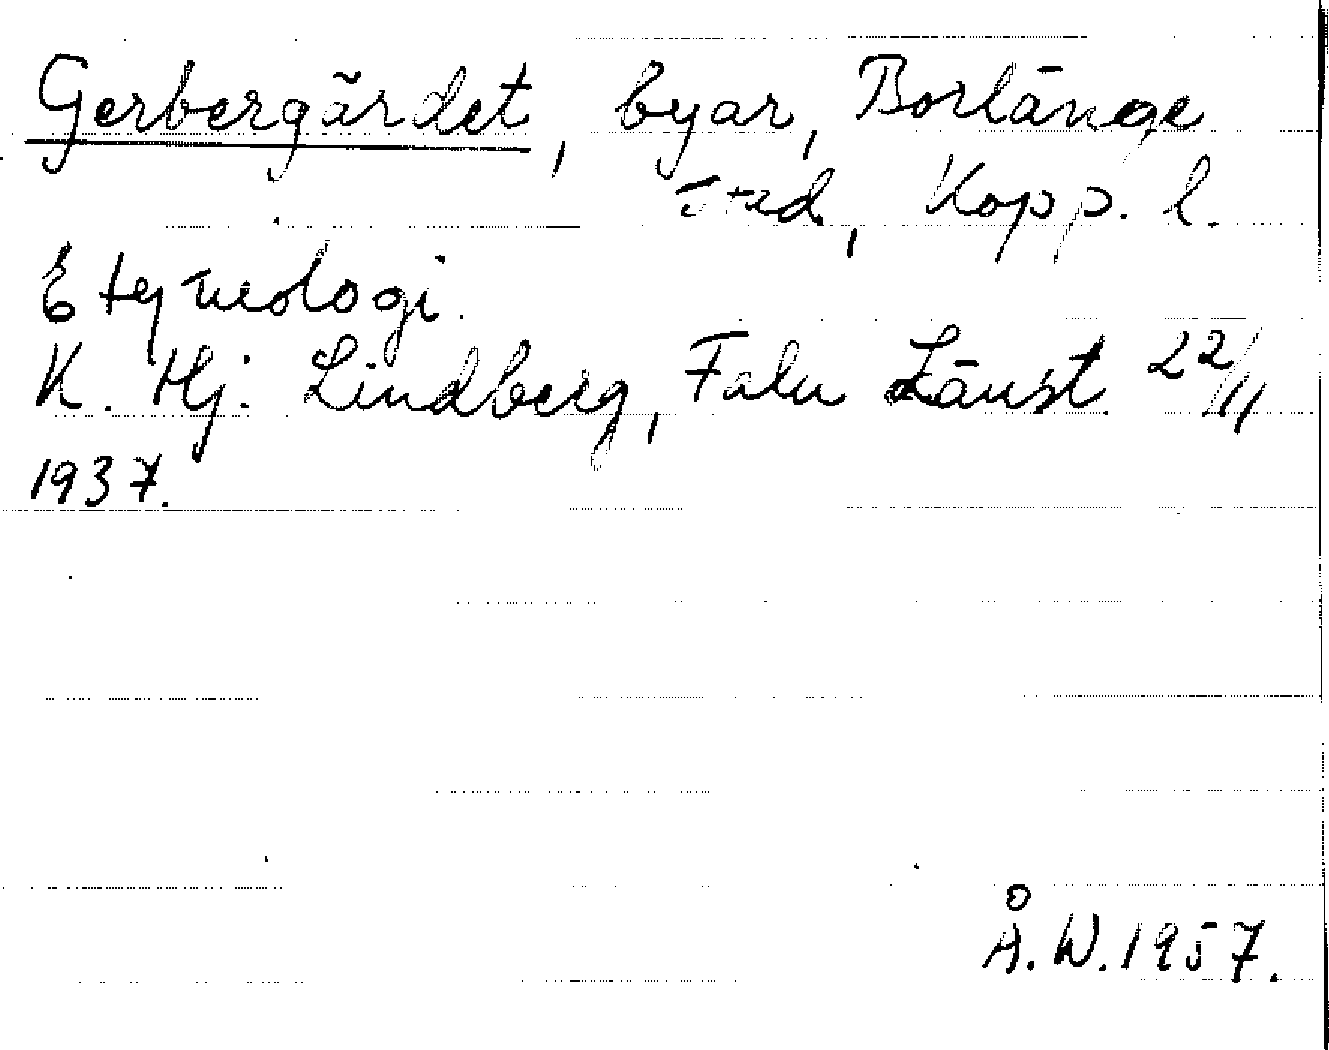 Gerbergärdet, byar, Borlänge
stad, Kopp. l.
Etymologi.
K. Hj. Lindberg, Falu Länst. 22/11
1937.
Å. W. 1957.